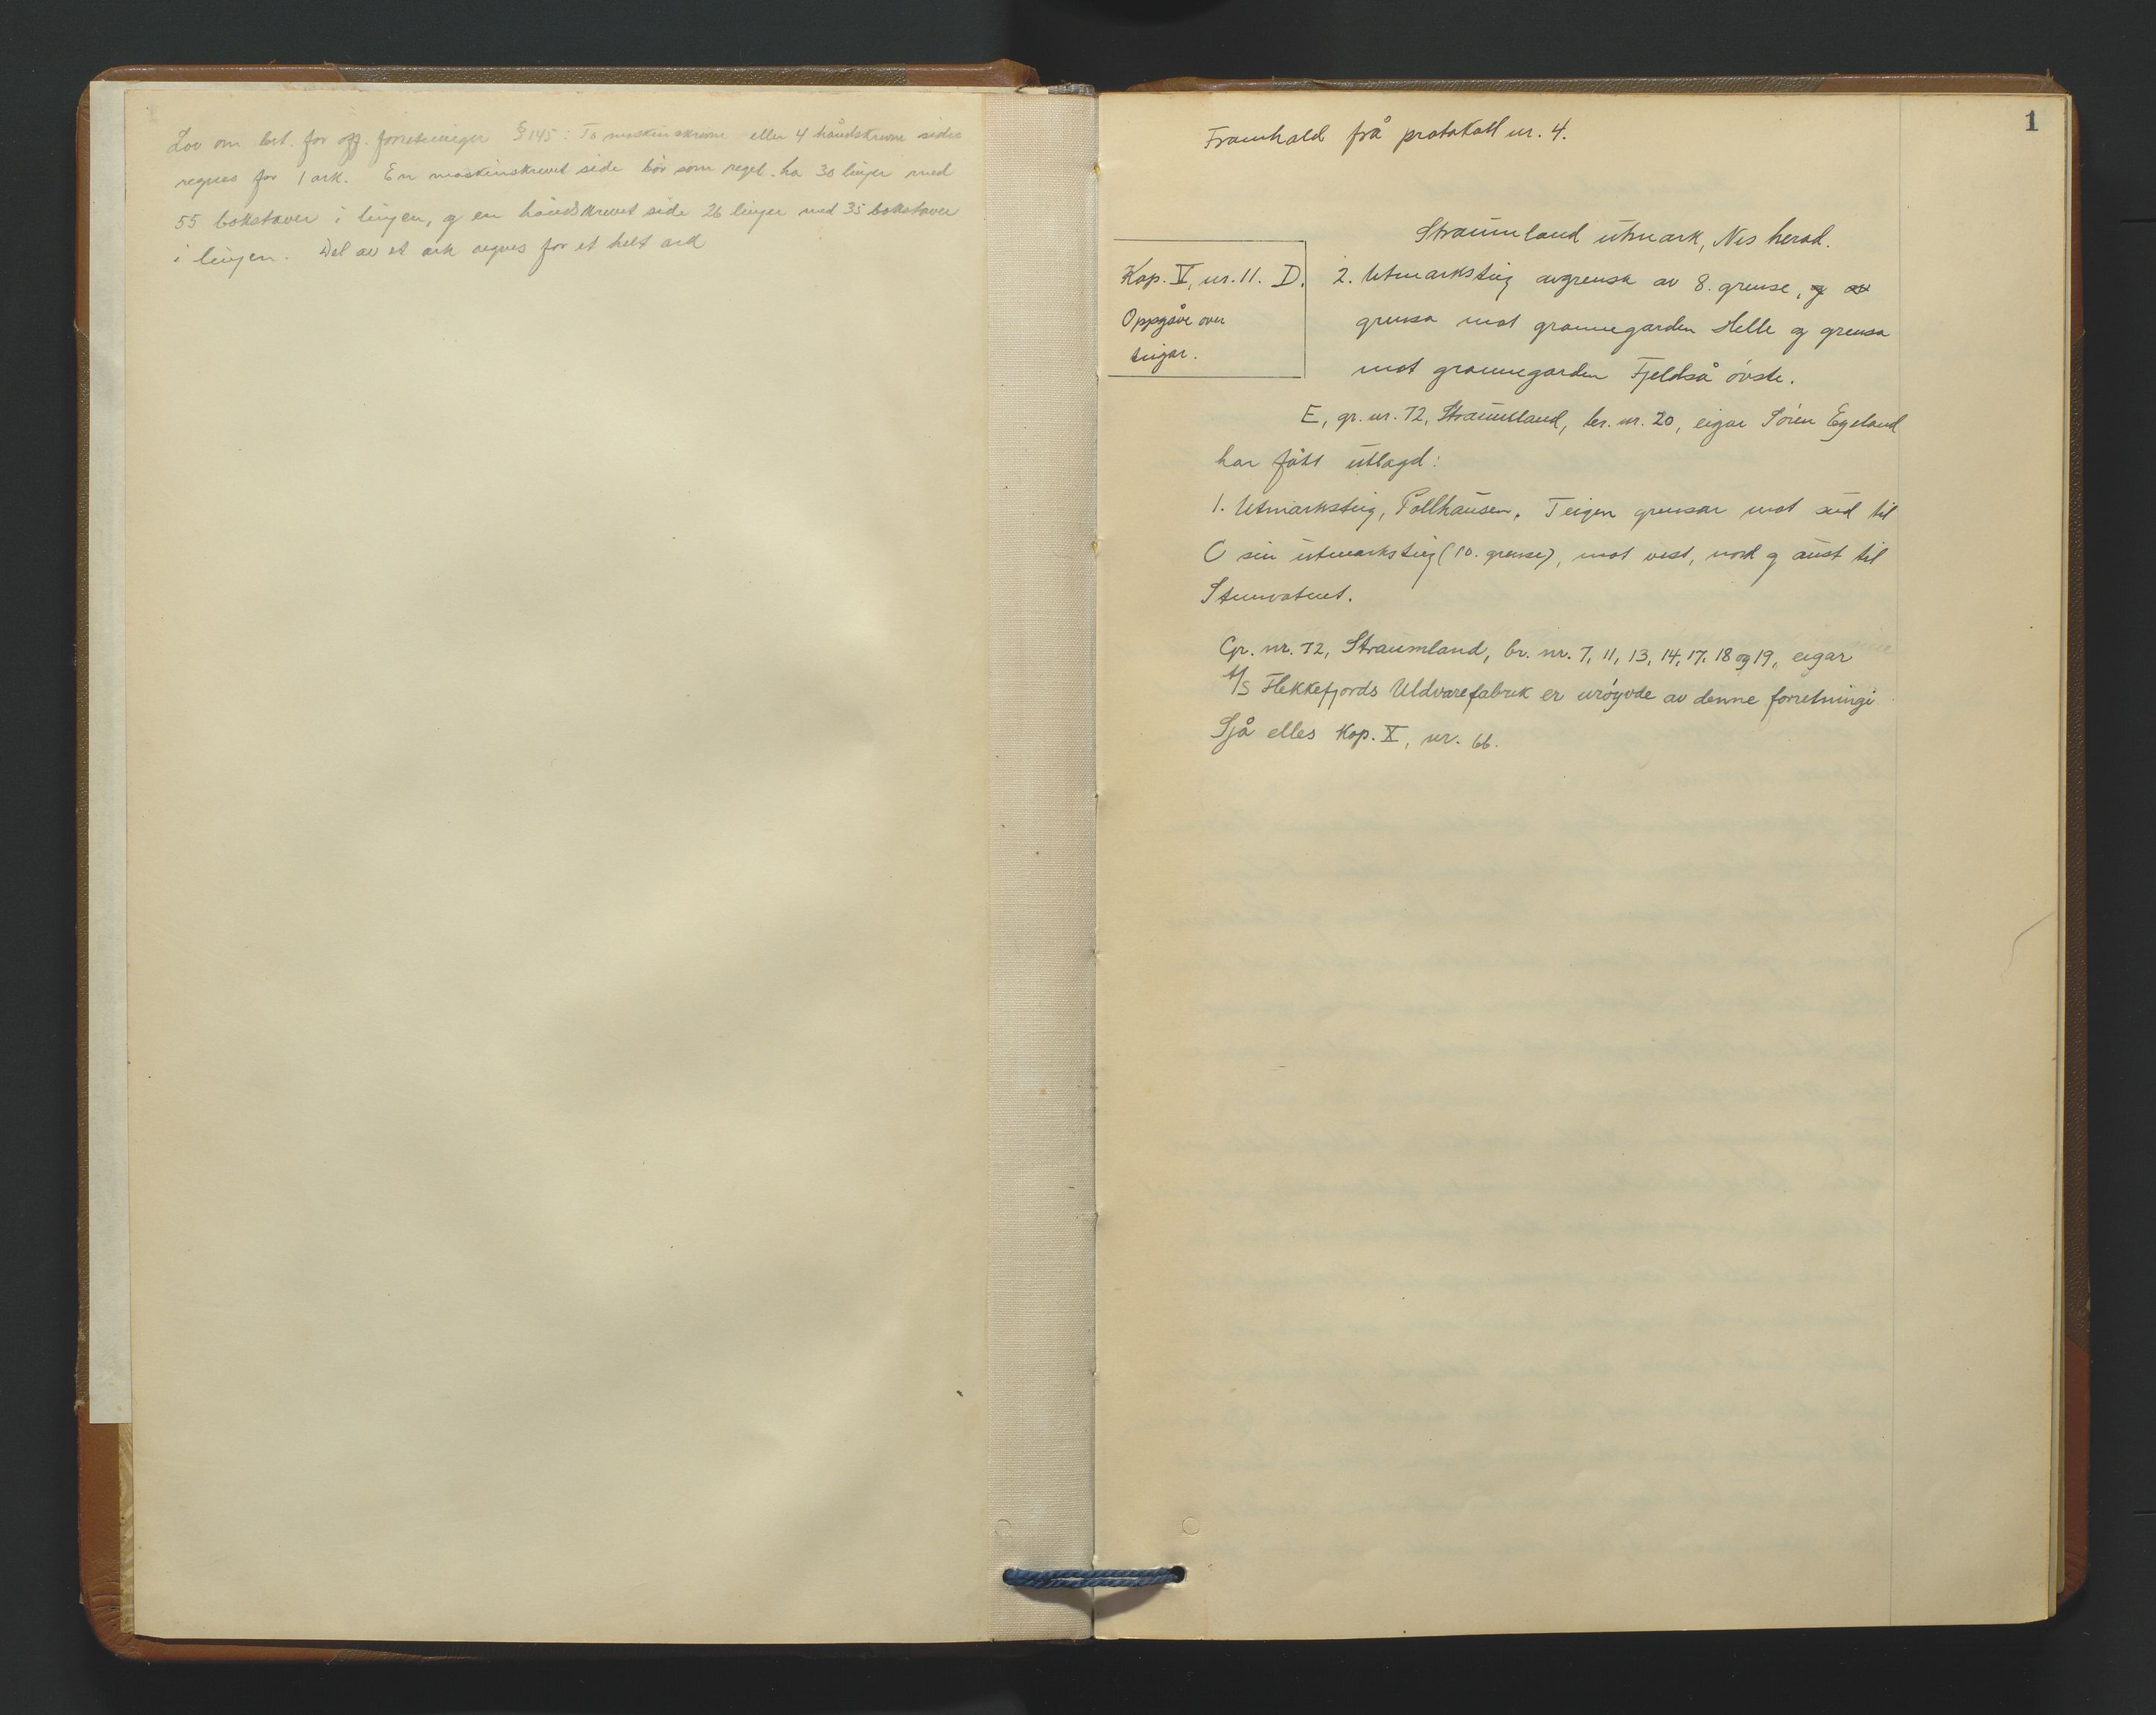 Lov om bet. for off. forretninger §145: To maskinskrevne eller 4 håndskrevne sider
regnes for 1 ark. En maskinskrevet side bör som regel ha 30 linjer med
55 bokstaver i linjen, og en håndskrevet side 26 linjer med 35 bokstaver
i linjen. Del av et ark regnes for et helt ark
1
Framhald frå protokoll nr. 4.
Straumland utmark, Nes herad.
Kap. V, nr. 11. D.
Oppgåve over
teigar.
2. Utmarksteig avgrensa av 8. grense, og av
grensa mot grannegarden Helle og grensa
mot grannegarden Fjeldså övste.
E, gr. nr. 72, Straumland, br. nr. 20, eigar Sören Egeland
har fått utlagd:
1. Utmarksteig, Pollhausen. Teigen grensar mot sud til
C sin utmarksteig (10. grense), mot vest, nord og aust til
Stemvatnet.
Gr. nr. 72, Straumland, br. nr. 7, 11, 13, 14, 17, 18 og 19, eigar
A/S Flekkefjords Uldvarefabrik er uröyvde av denne forretningi
Sjå elles Kap. X, nr. 66.